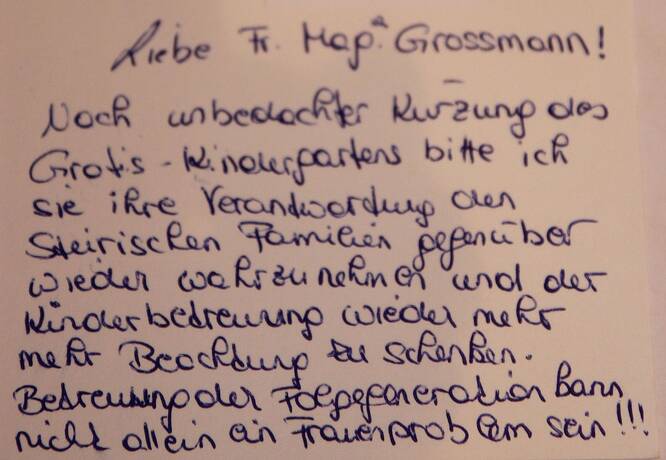 Liebe Fr. Mag.ᵃ Grossmann!
Nach unbedachter Kürzung des
Gratis-Kindergartens bitte ich
sie ihre Verantwordung den
Steirischen Familien gegenüber
wieder wahrzunehmen und der
Kinderbedreuung wieder mehr
mehr Beachdung zu schenken.
Bedreuung der Folgegeneration kann
nicht allein ein Frauenproblem sein!!!